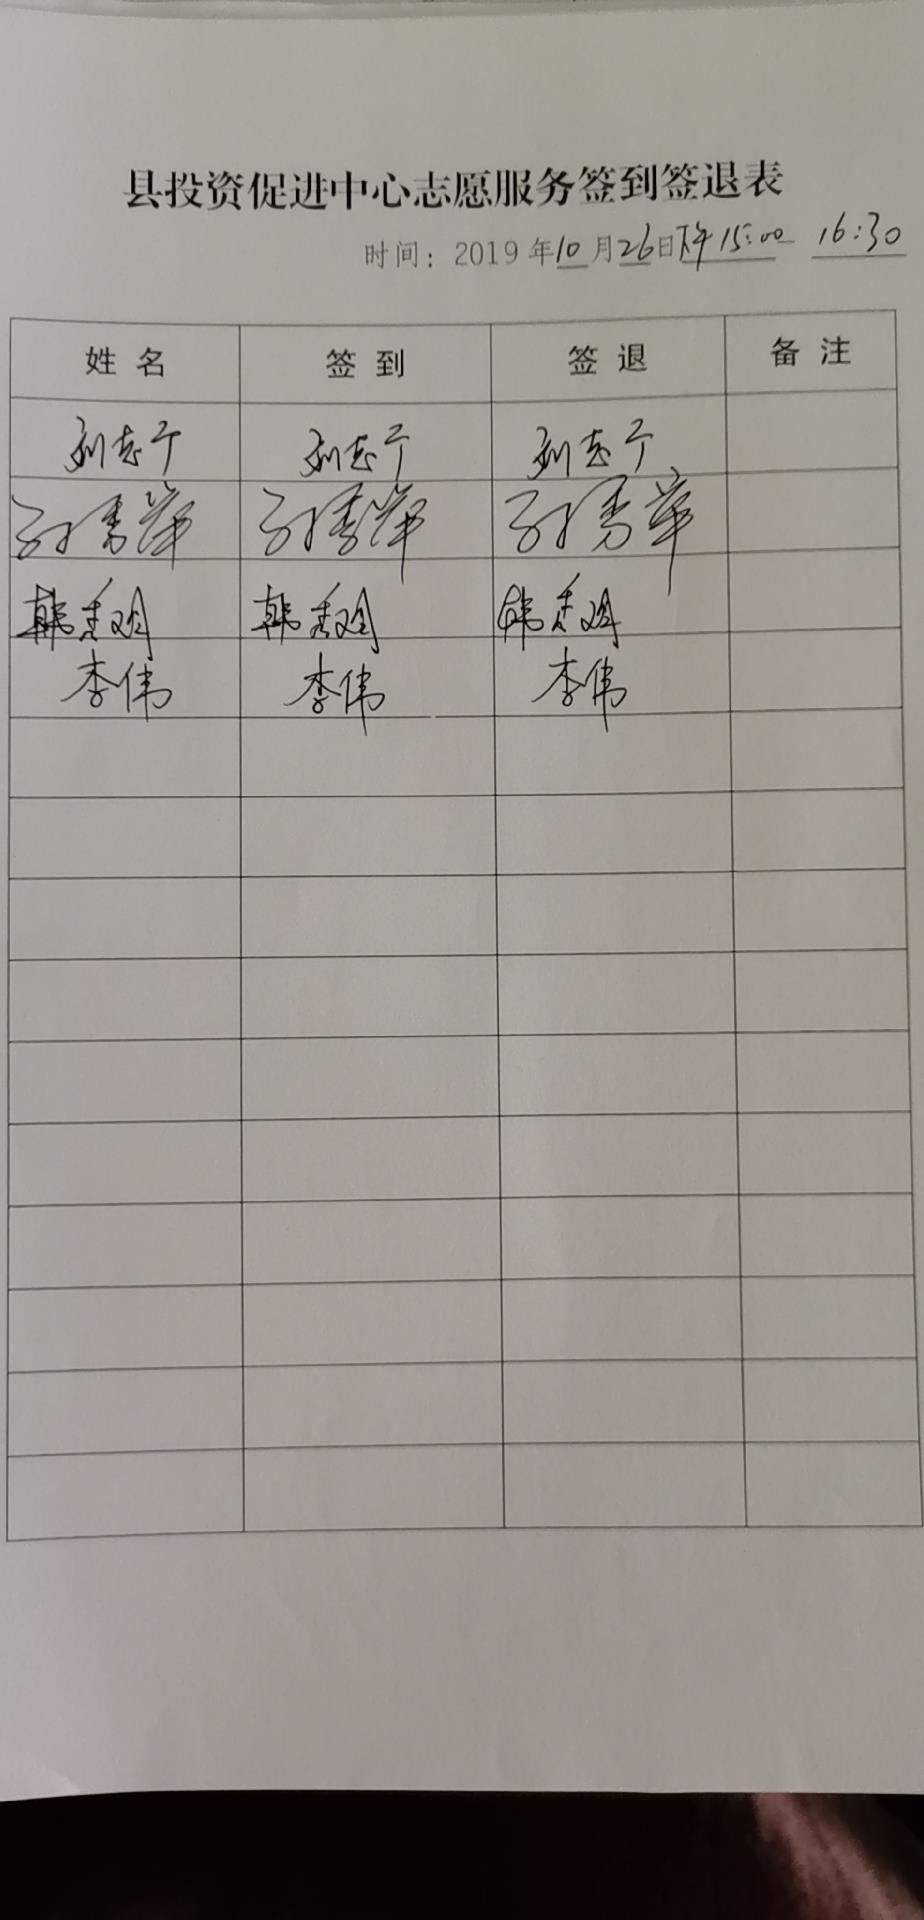 县投资促进中心志愿服务签到签退表
时间：2019年10月26日下午15:00— 16:30
姓名 签到 签退 备注
刘志宁 刘志宁 刘志宁
孙秀萍 孙秀萍 孙秀萍
韩秀娟 韩秀娟 韩秀娟
李伟 李伟 李伟